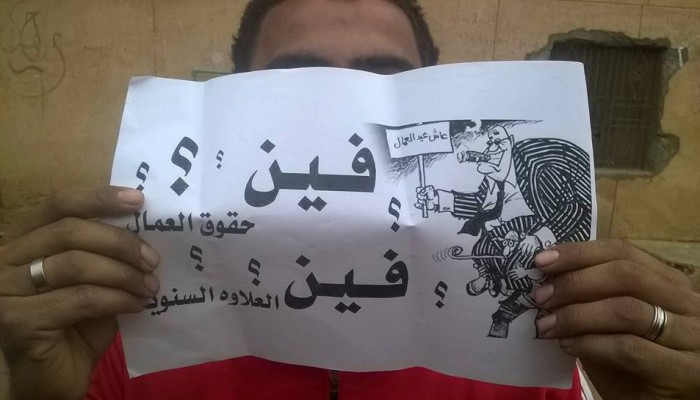 عاش عيد العمال
فين ؟ ؟ ؟
حقوق العمال ؟
فين ؟ ؟ ؟
العلاوه السنويه